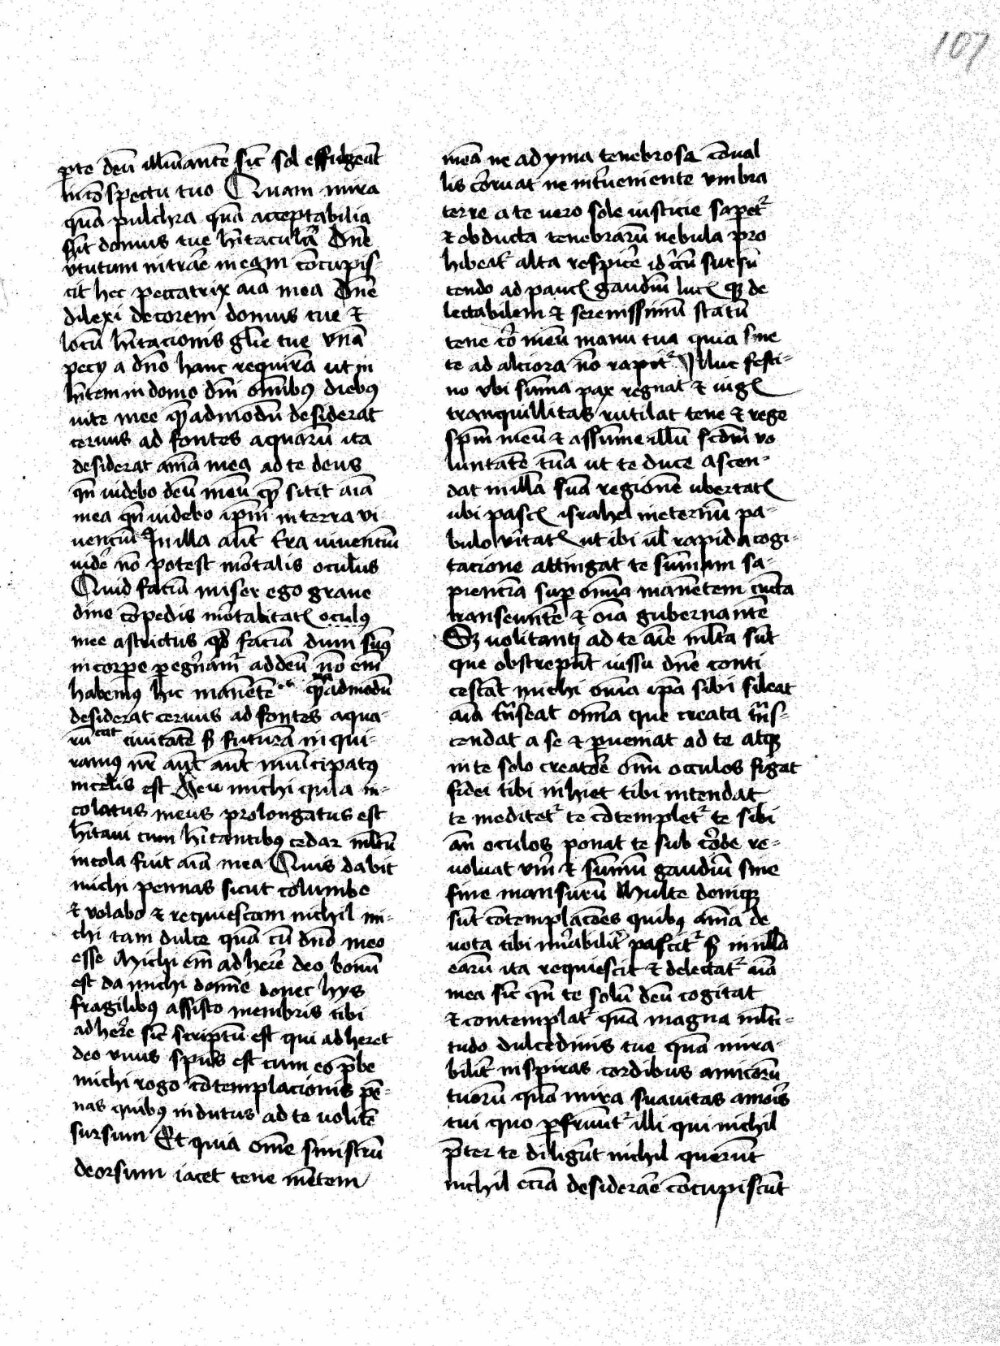 107
pte deū illuīante sic̄ sol effulgeāt
in cōspectu tuo Quam mira
quā pulchra quā acceptabilia
sūt domus tue hītacula Dn̄e
v̄tutum intrāe in eam cōcupis-
cit hec peccatrix aīa mea Dn̄e
dilexi decorem domus tue et
locū hītacionis glīe tue vnā
pecy a dn̄o hanc requirā ut in
hītem in domo dn̄i oīnibus diebus
vite mee q̄admodū desiderat
ceruus ad fontes aquarū ita
desiderat aīma mea ad te deus
qn̄ videbo deū meū q̄ sitit aīa
mea qn̄ videbo ip̄m in terra vi-
uenciū In illa aūt tr̄a viuenciū
vidē nō potest mortalis oculus
Quid faciā miser ego graue
dine cōpedis mortalitatꝭ oculus
mee astrictus qd̄ faciā dum sum9
in corpe pegnam̄ ad deū nō em̄
habem9 hic manētē q̄admodū
desiderat ceruus ad fontes aqua-
rū cat ciuitatē s̄ futurā inqui-
ram9 nr̄ aūt aūt municipat9
in celis est Heu michi quia in-
colatus meus prolongatus est
hītaui cum hītantibus cedar mltū
incola fuit aīa mea Quis dabit
michi pennas sicut columbe
et volabo et requiescam nichil mi-
chi tam dulce quā cū dn̄o meo
esse Michi em̄ adherē deo bonū
est da michi domīe donec hys
fragilibus assisto membris tibi
adherē sic̄ scriptū est qui adheret
deo vnus sp̄us est cum eo p̄be
michi rogo cōtemplacionis pē-
nas quibus indutus ad te volitē
sursum Et quia om̄e sinistrū
deorsum iacet tene mētem
meā ne ad yma tenebrosa cōual
lis coruat ne int̄ueniente vmbra
terre a te vero sole iusticie sapet̄
et obducta tenebrarū nebula pro
hibeat̄ alta respicē idcircū sursū
tendo ad paucꝭ gaudiū lucꝭ q̄ de
lectabilem et serenissimū statū
tene cor meū manu tua quia sine
te ad alciora nō rapit̄ Illuc festi-
no vbi sūma pax regnat et iugꝭ
tranquillitas rutilat tene et rege
sp̄m meū et assume illū scdm̄ vo
luntatē tuā ut te duce ascen-
dat in illā suā regionē ubertatꝭ
ubi pascꝭ israhel in eternū pa-
bulo vitatꝭ ut ibi ul̄ rapida cogi-
tacione attingat te summam sa-
pienciā sup om̄ia manentem cūcta
transeuntē et oīa gubernantē
Sꝫ volitanti ad te aīe mlta sūt
que obstrepūt iussu dn̄e conti
cescāt michi om̄ia ipā sibi sileat
aīa trāseat om̄ia que creata trās-
cendat a se et pueniat ad te atq3
in te solo creatore om̄i oculos figat
fidei tibi inhiet tibi intendat
te meditet̄ te cōtemplet̄ te sibi
an̄ oculos ponat te sub corde re-
uoluat vm̄ et sūmū gaudiū sine
fine mansurū Multe deniq3
sūt cōtemplacōes quibus aīma de
uota tibi mirabilit̄ pascit̄ s̄ in nulla
earū ita requiescit et delectat̄ aīa
mea sic̄ qn̄ te solū deū cogitat
et contemplat̄ quā magna mlti-
tudo dulcedinis tue quā mira-
bilit̄ inspiras cordibus amicorū
tuorū quā mira suauitas amoris
tui quo pfruūt̄ illi qui nichil
p̄ter te diligūt nichil querūt
nichil eciā desiderāe cōcupiscūt